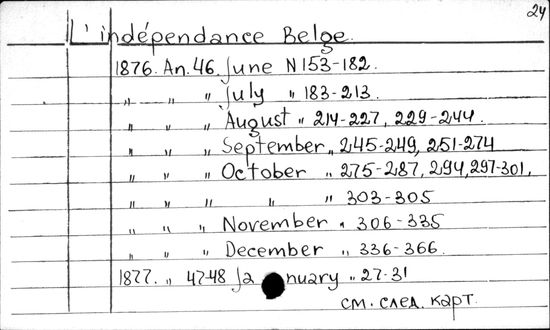 24
L'indépendance Belge.
1876. An. 46. June N 153-182.
" " " July " 183-213.
" " " August " 214-227, 229-244.
" " " September " 245-249, 251-274
" " " October " 275-287, 294, 297-301,
" " " " " 303-305
" " " November " 306-335
" " " December " 336-366.
1877. " 47-48 January " 27-31
см. след. карт.